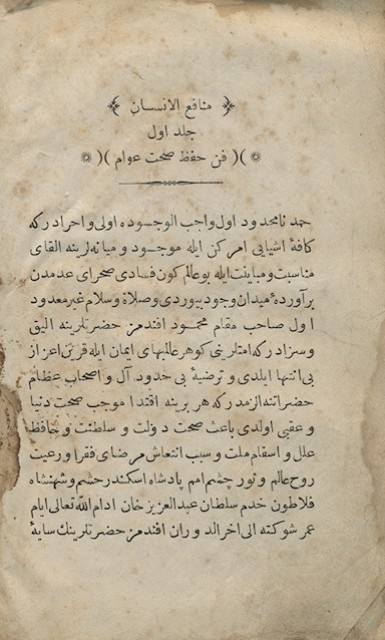 منافع الانسان
جلد اول
فن حفظ صحت عوام
حمد نامحدود اول واجب الوجوده اولی و احرادرکه
کافهٔ اشیایی امر کن ایله موجود و میانه لرینه القای
مناسبت و مباینت ایله بو عالم کون فسادی صحرای عدمدن
برآوردهٔ میدان وجود بیوردی و صلاة و سلام غیر معدود
اول صاحب مقام محمود افندمز حضرتلرینه الیق
و سزادرکه امتلرینی کوهر عالمبهای ایمان ایله قرین اعزاز
بی انتها ایلدی و ترضیهٔ بی حدود آل و اصحاب عظام
حضراتنه ازمدرکه هر برینه اقتدا موجب صحت دنیا
و عقبی اولدی باعث صحت دولت و سلطنت و حافظ
علل و اسقام ملت و سبب انتعاش مرضای فقرا و رعیت
روح عالم و نور چشم امم پادشاه اسکندر حشم و شهنشاه
فلاطون خدم سلطان عبدالعزیز خان ادام الله تعالی ایام
عمر شوکته الی اخر الدوران افندمز حضرتلرینك سایهٔ